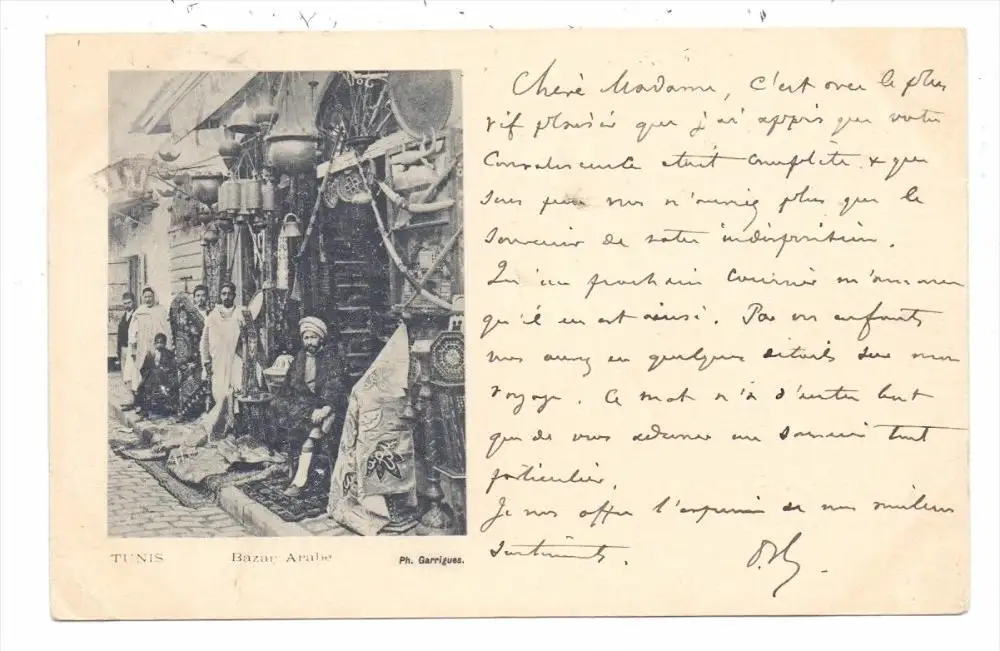 Chère Madame, c'est avec le plus
vif plaisir que j'ai appris que votre
convalescence était complète & que
sous peu vous n'auriez plus que le
souvenir de votre indisposition.
Qu'un prochain courrier m'annonce
qu'il en est ainsi. Par vos enfants
vous aurez eu quelques détails sur mon
voyage. Ce mot n'a d'autre but
que de vous adresser un souvenir tout
particulier.
Je vous offre l'expression de mes meilleurs
sentiments.
TUNIS Bazar Arabe Ph. Garrigues.